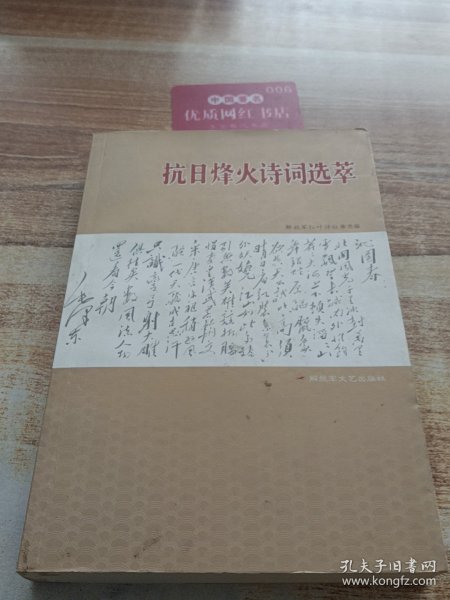 006
中国著名
优质网红书店
抗日烽火诗词选萃
解放军红叶诗社
沁园春
北国风光千里冰封万里
雪飘望长城内外惟余
莽莽大河上下顿失滔滔山
舞银蛇原驰腊象
欲与天公试比高须
晴日看红装素裹分
外妖娆江山如此多娇
引无数英雄竞折腰
惜秦皇汉武略输文
采唐宗宋祖稍逊风
骚一代天骄成吉思汗
只识弯弓射大雕
俱往矣数风流人物
还看今朝
毛泽东
解放军文艺出版社
孔夫子旧书网
www.kongfz.com